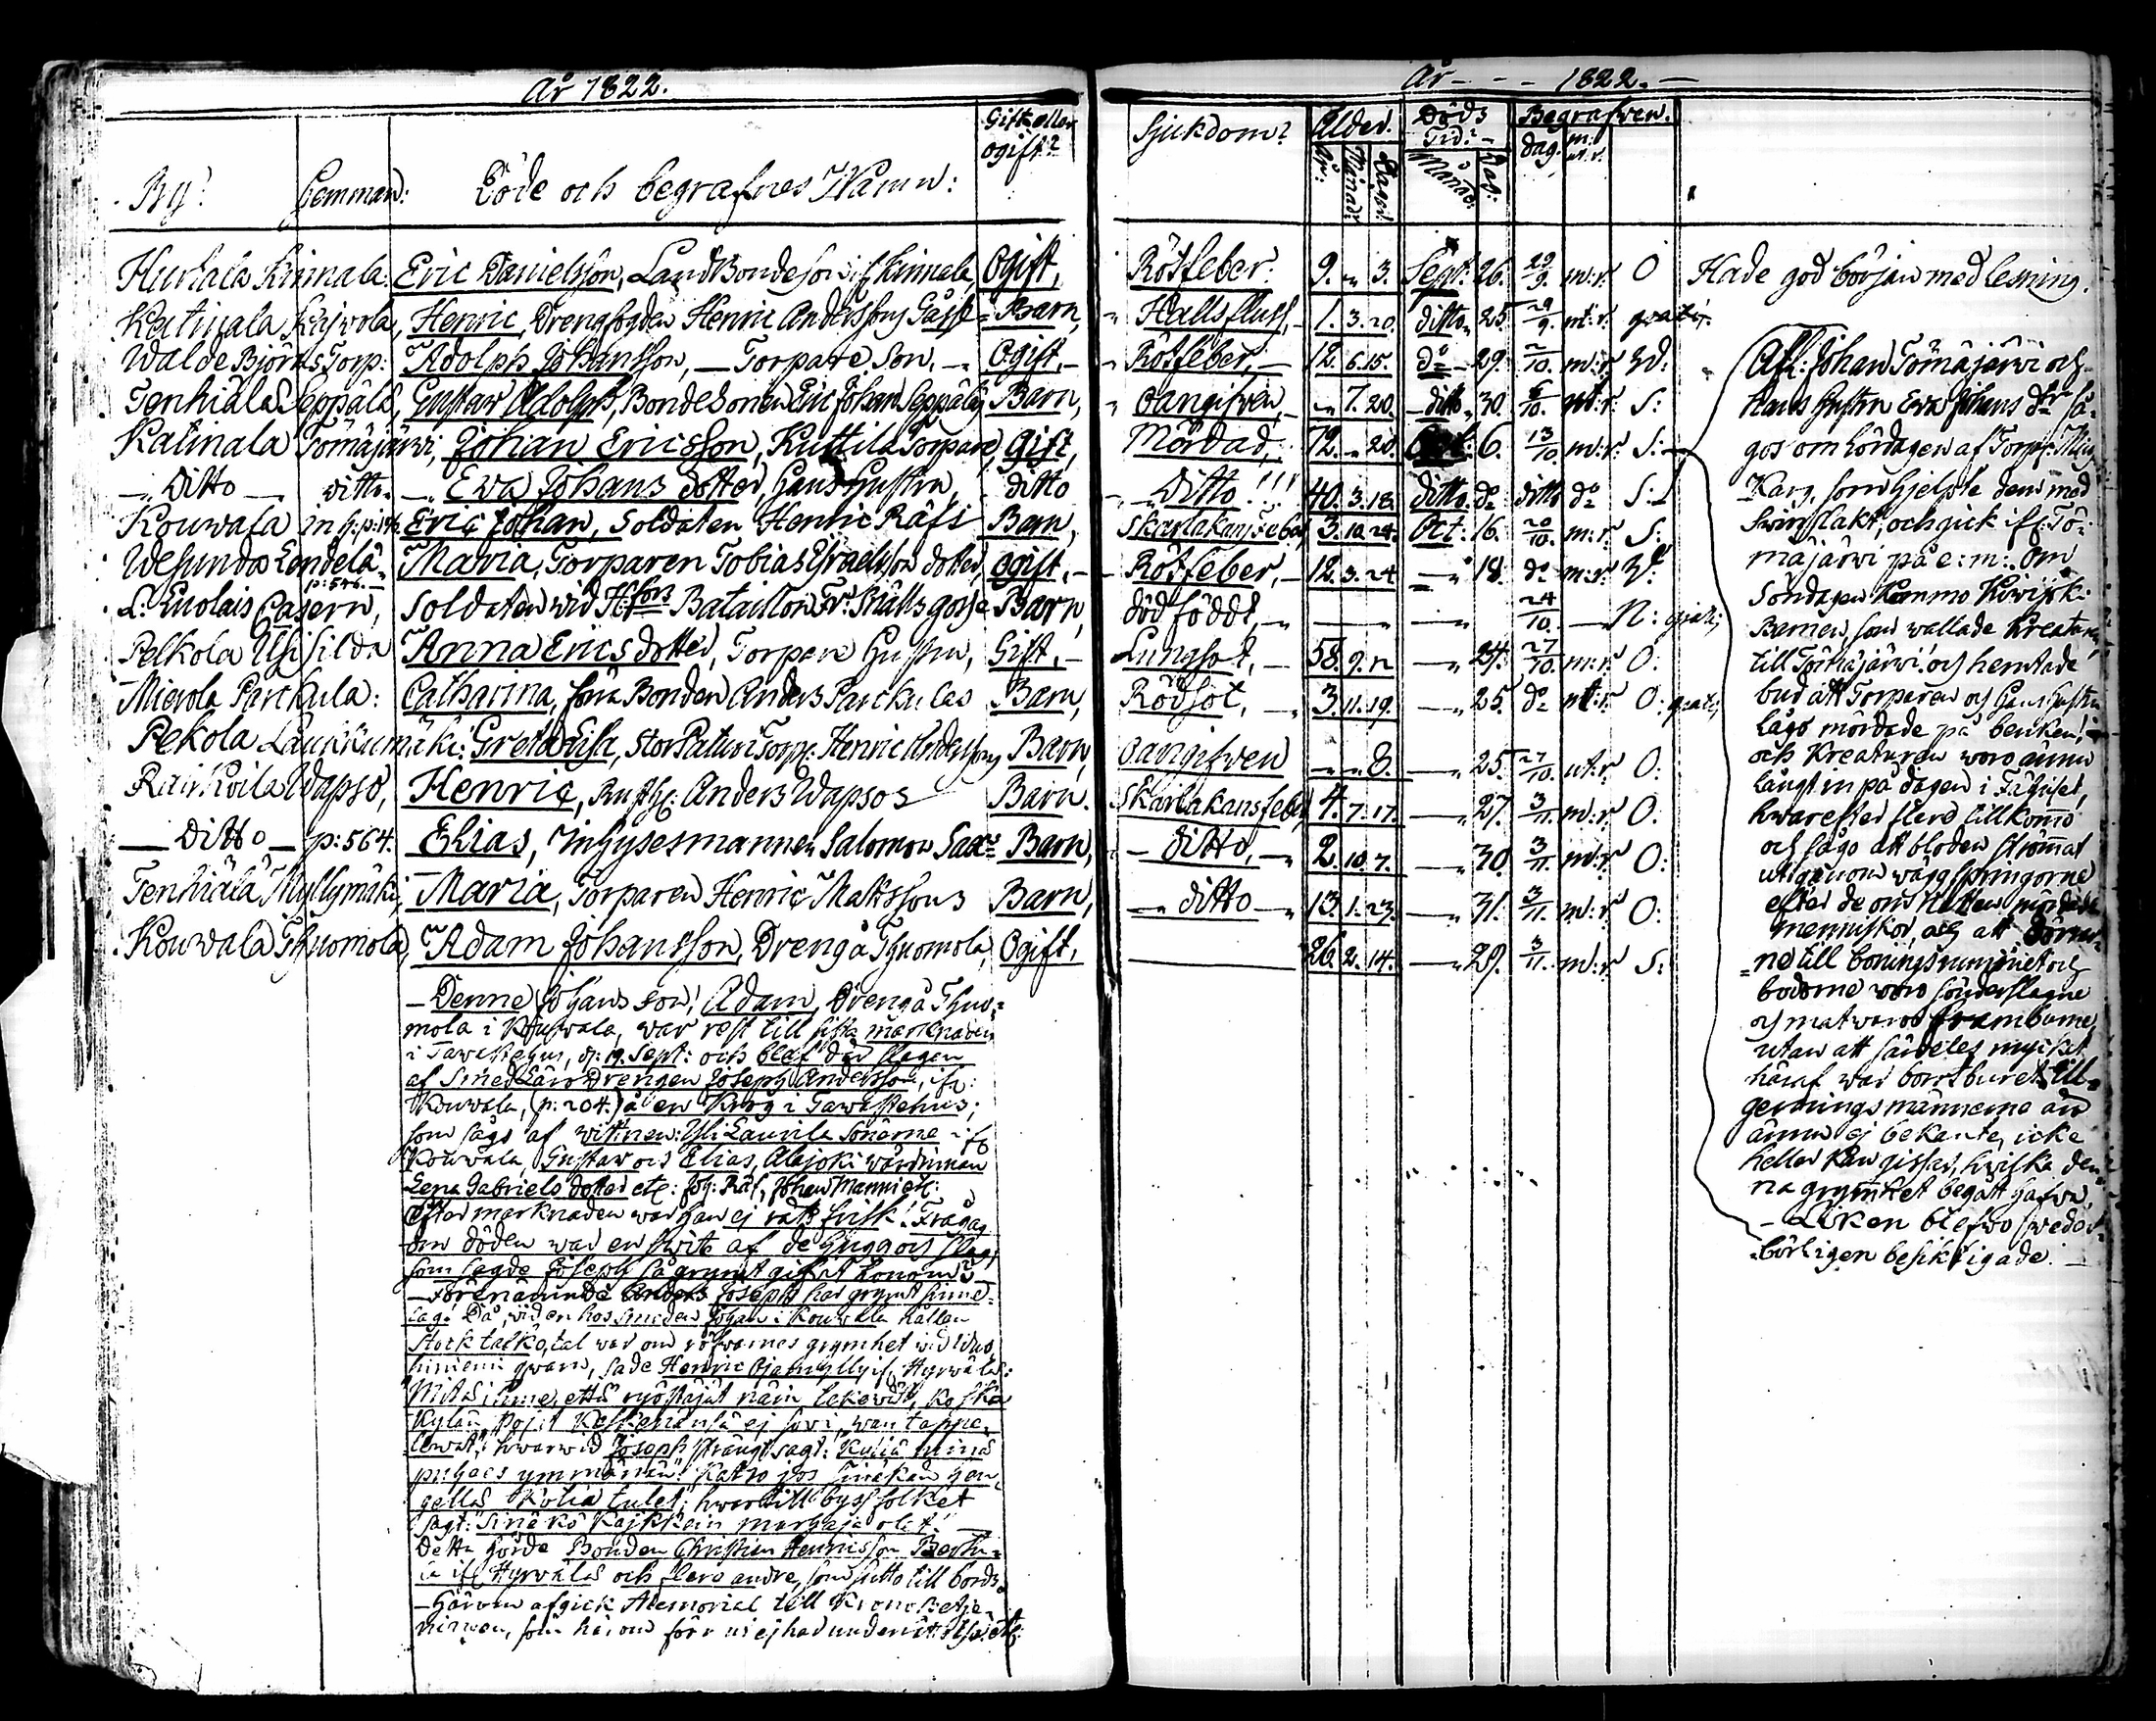 År 1822.
By? Hemman: Döde och begrafnes Namn: Gift eller ogift?
Huhala Hinnala: Eric Danielsson, LandBondeson if. Hinnala, Ogift,
Katinala Kajvola, Henric, Drengfogden Henric Anderssons Barn,
Walde Björns Torp: Adolph Johansson, — Torpare Son, Ogift,
Tenhiälä Seppälä, Gustaw Adolph, Bondesonen Eric Johan Seppäläs Barn,
Katinala Tömäjärwi, Johan Ericsson, Kuttila Torpare, Gift,
— Ditto — ditto — Ewa Johans dotter, Hans Hustru, ditto
Kouwala Eric Johan, Soldaten Henric Räfs Barn,
Wesunda Eendelä p: 546. Maria, Torparen Tobias Ysraelsson dotter, Ogift,
L. Luolais Casern, Soldaten wid H:fors Bataillon Barn,
Pelkola Usi silda Anna Erics dotter, Torpare Hustru, Gift,
Mierola Parckula: Catharina, förra Bonden Anders Parckulas Barn,
Pekola Laukkumäki: Greta Lisa, Stor Paturi Torp: Henric Anderssons Barn,
Rairkoila Wapso, Henric, Rusth: Anders Wapsos Barn.
— Ditto — p: 564. Elias, Inhysesmannen Salomon Barn,
Tenhiälä Myllymäki, Maria, Torparen Henric Matssons Barn,
Kouwala Thuomola, Adam Johansson, Dreng å Thuomola, Ogift,
— Denne Johans son, Adam, Dreng å Thuo-
mola i Kouwala, war rest till sista marcknaden
i Tawastehus, d: 19. Sept: och blef der slagen
af Smed Läro Drengen Joseph Andersson, if:
Kouwala, (p: 204.) å en Krog i Tawastehus;
som sågs af wittnen: Yli Laurila Sönerne if
Kouwala, Gustaw och Elias, Alajoki wärdinnan
Lena Gabriels dotter etc: Joh: Räf, Johan Manni etc:
Efter marknaden war han ej rätt frisk! Frågas
om döden war en fruit af de hugg och slag,
som sagde Joseph så grymt gifvit honom?
— Förenämnde Joseph har grymt sinne-
lag! Då, wid en hos smeden Johan i Kouwala hållen
Stock talko, tal war om röfwarnes grymhet wid
qwarn, sade Henric Ojamylly if Hyrwälä:
Mitäs ihme, että ryöstäjät näin tekewät, koska
Kylän pojat keskenänsä ej sowi, wan tappe-
lewat", hwarwid Joseph strängt sagt: Kyllä minä
puhees ymmärrän! Katzo jos sinäkän hen-
gellä kotia tulet; hwartill bysfolket
sagt: "Sinäkö kaikkein murhaja olet."
Detta hörde Bonden Christian Henricsson
if Hyrwälä och flere andre, som sutto till bords.
— Härom afgick Memorial till Krono Betje-
ningen, som härom förr ej had underrättelse, etc:
År - - - 1822. —
Sjukdom? Ålder. Döds Tid? Begrafven.
År: Månad: Dagar: Månad: Dag: dag. m:r ut:r.
Rötfeber. 9. „ 3. Sept: 26. 29/9. m:r. O Hade god början med läsning.
Hallsfluss, 1. 3. 20. ditto 25. 29/9. ut:r. gratis.
Rötfeber, — 12. 6. 15. do 29. 2/10. m:r
oangifven, „ 7. 20. ditto 30. 6/10. ut:r. S:
Mördad, 72. „ 20. Oct: 6. 13/10. m:r. S:
— Ditto!!! 40. 3. 18. ditto do ditto do S:
Skarlakans Feber, 3. 10. 24. Oct: 16. 20/10. m:r. S:
Rötfeber, — 12. 3. 24 — 18. do m:r.
död född, — — — 24/10. — N: gratis
Lungsot, — 58. 9. — 24. 27/10. m:r. O:
Rödsot, 3. 11. 19. — 25. do ut:r. O: gratis
oangifven — „ 8. — 25. 27/10. ut:r. O:
Skarlakansfeber 4. 7. 17. — 27. 3/11. m:r. O:
— ditto, — 2. 10. 7. — 30. 3/11. m:r. O:
— ditto — 13. 1. 23. — 31. 3/11. m:r. O:
26. 2. 14. — 29. 3/11. m:r. S:
Afl: Johan Tömäjärwi och
hans hustru Ewa Johans dr så-
gos om Lördagen af Torp:
Karg, som hjelpte dem med
swinslakt, och gick if Tö-
mäjärwi på e: m: Om
Söndagen kommo
Barnen, som wallade kreaturen
till Tömäjärwi! och hemtade
bud att Torparen och hans hustru
lågo mördade på benken!
och Kreaturen woro ännu
långt in på dagen i Fähuset,
hwarefter flere tillkommo
och sågo att bloden strömmat
ut genom wäggspringorne
efter de om natten mördade
menniskor, och att dörrar-
ne till boningsrummet och
bodorne woro sönderslagne
och matwaror framburne,
utan att särdeles mycket
häraf war bortburet. Ill-
gerningsmännerne äro
ännu ej bekante, icke
heller kan gissas, hwilka den-
na grymhet begått hafwa,
— Liken blefwo weder-
börligen besiktigade. —